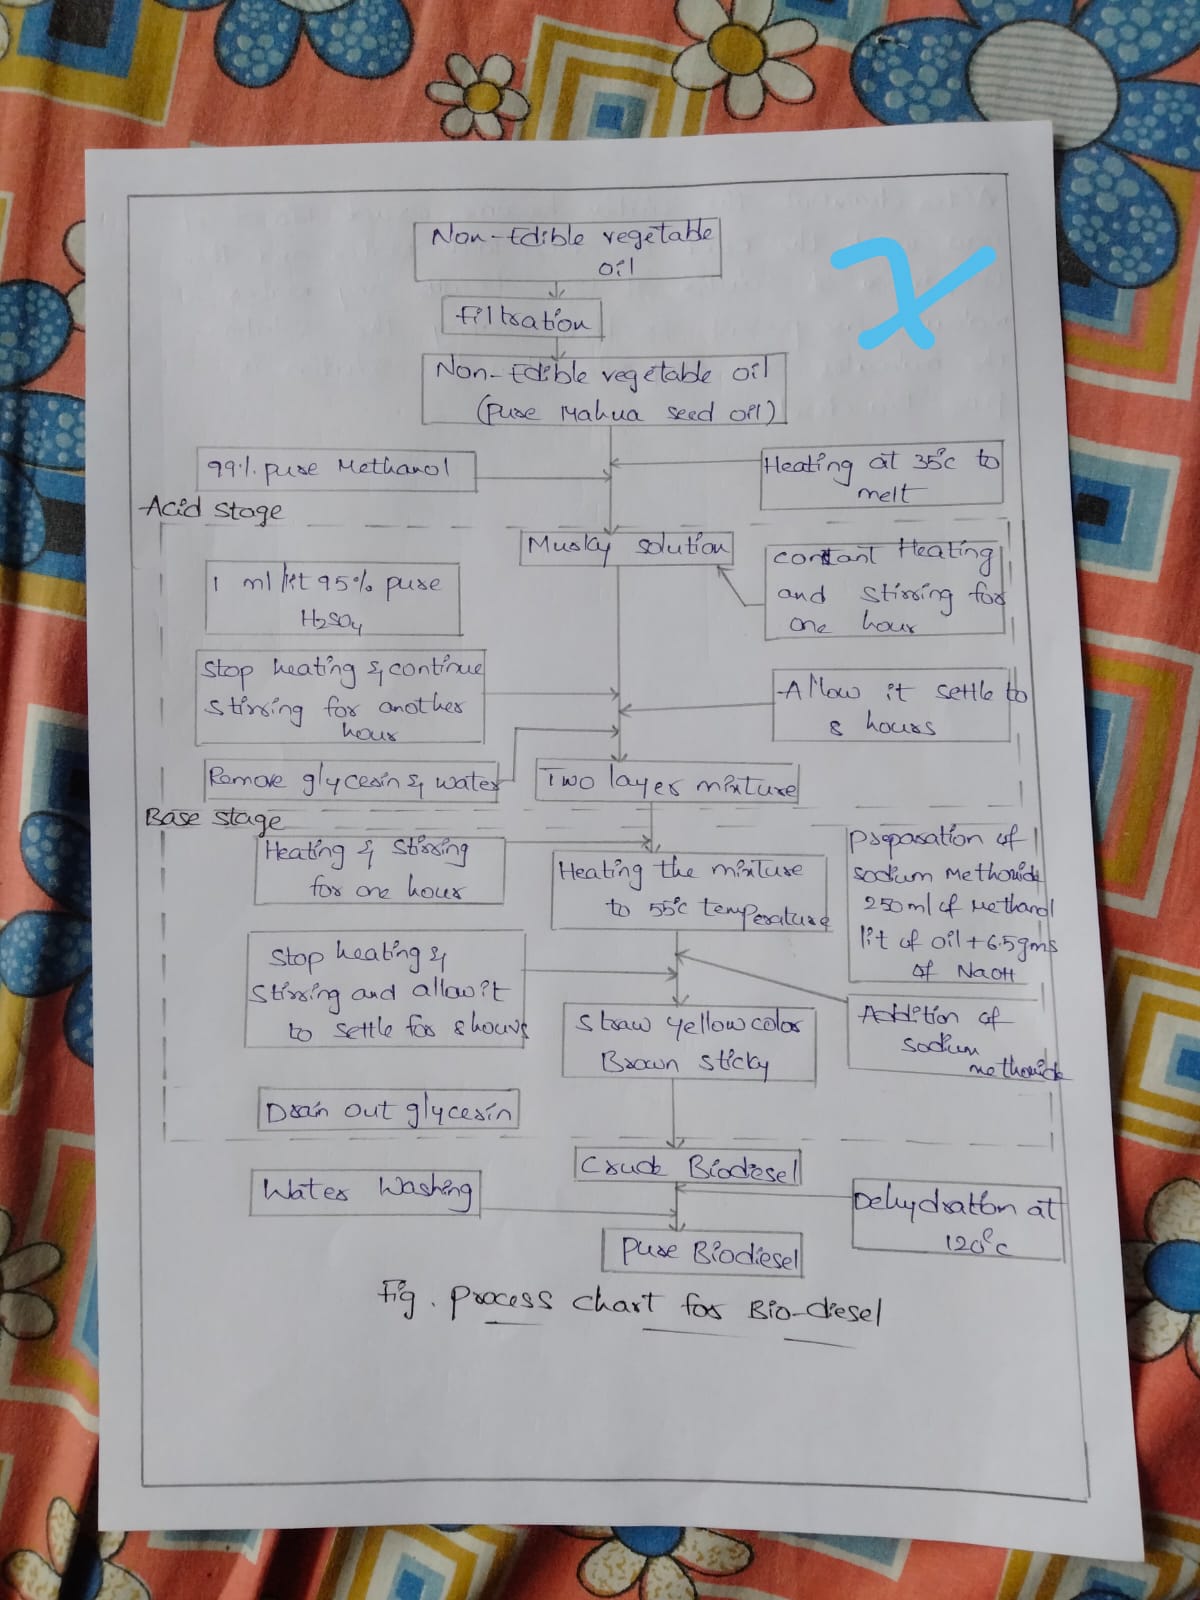 Non-Edible vegetable
oil
Filtration
Non-Edible vegetable oil
(pure Mahua seed oil)
99% pure Methanol
Heating at 35°c to
melt
Acid stage
Musky solution
constant Heating
and stirring for
one hour
1 ml/lit 95% pure
H2SO4
Stop heating & continue
stirring for another
hour
Allow it settle to
8 hours
Remove glycerin & water
Two layer mixture
Base stage
Heating & stirring
for one hour
Heating the mixture
to 55°c temperature
preparation of
sodium Methoxide
250 ml of Methanol
lit of oil + 6.5gms
of NaOH
Stop heating &
stirring and allow it
to settle for 8 hours
Straw yellow color
Brown sticky
Addition of
sodium
methoxide
Drain out glycerin
Crude Biodiesel
Water Washing
Dehydration at
120°c
pure Biodiesel
Fig. process chart for Bio-diesel